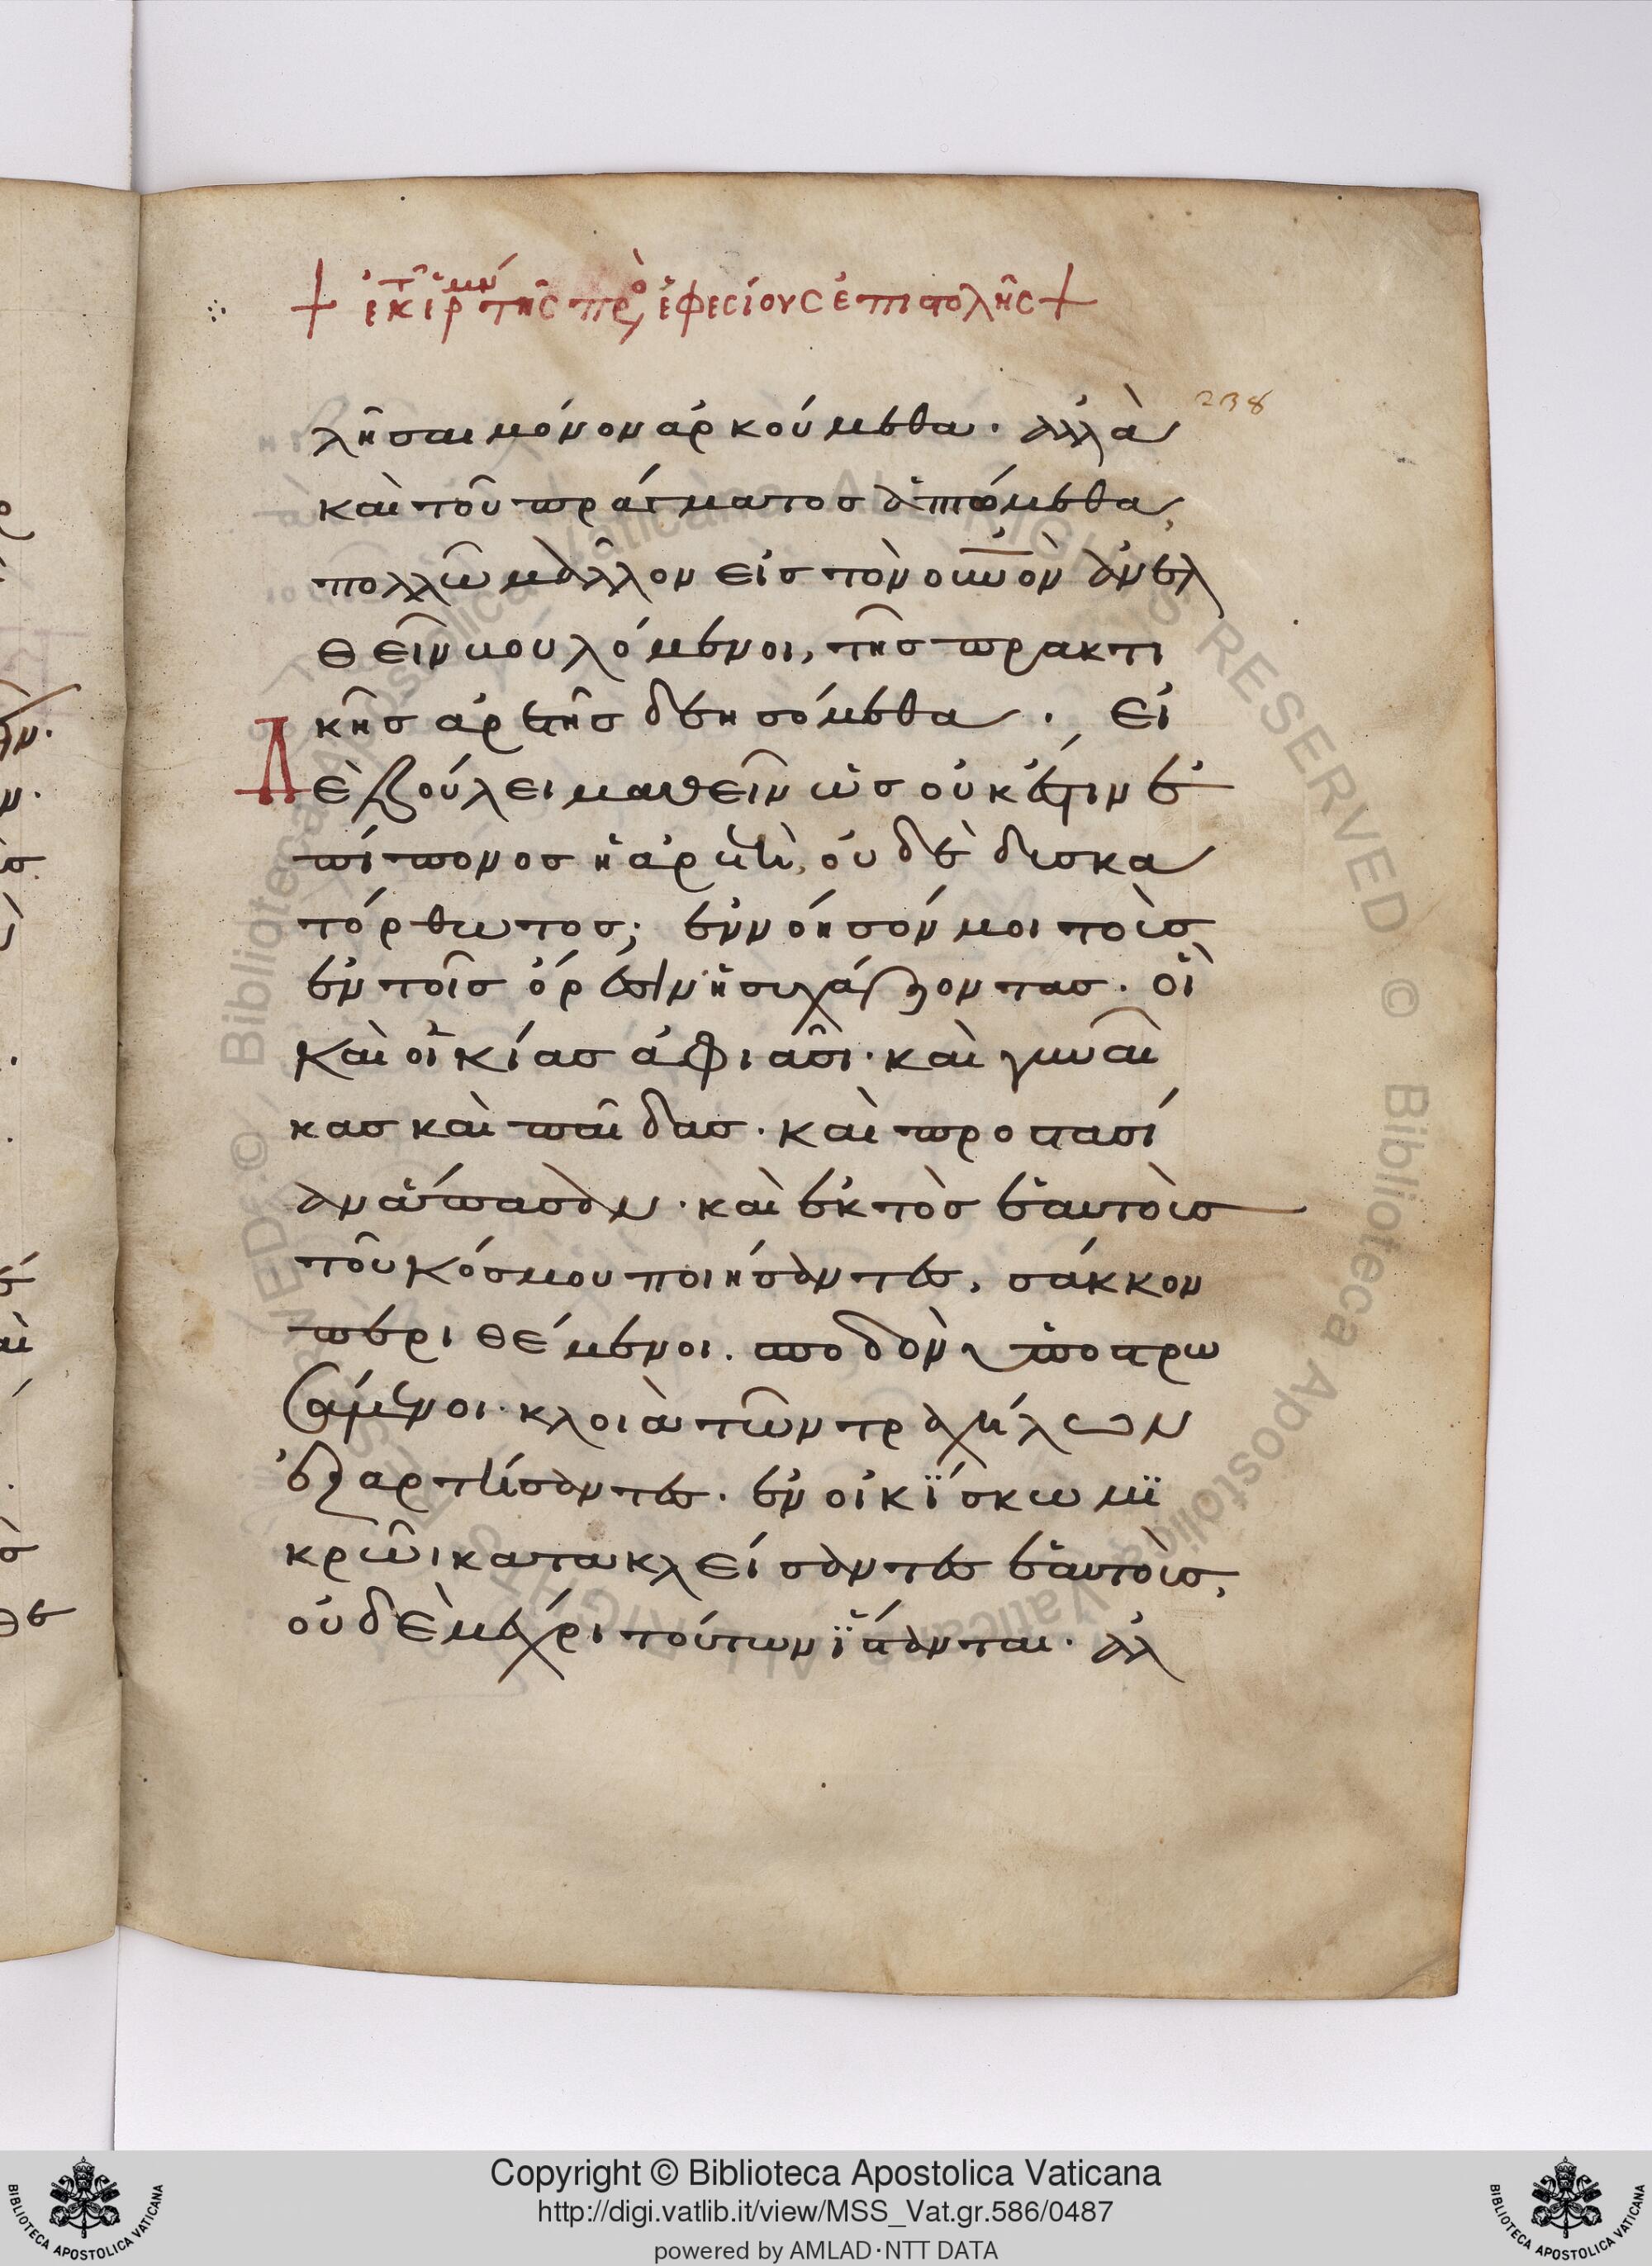 + ἐκ τῆς ἑρμην τῆς πρὸς ἐφεσίους ἐπιστολῆς +
238
λῆσαι μόνον ἀρκούμεθα· ἀλλὰ
καὶ τοῦ πράγματος ἁπτόμεθα,
πολλῶ μᾶλλον εἰς τὸν οὐνὸν ἀνελ
θεῖν βουλόμενοι, τῆς πρακτι
κῆς ἀρετῆς δεησόμεθα· Εἰ
Δὲ βούλει μαθεῖν ὡς οὐκ ἔστιν ἐ
πίπονος ἡ ἀρετὴ, οὐδὲ δυσκα
τόρθωτος; ἐννόησόν μοι τοὺς
ἐν τοῖς ὄρεσιν ἡσυχάζοντας· οἳ
καὶ οἰκίας ἀφιᾶσι· καὶ γυναῖ
κας καὶ παῖδας· καὶ προστασί
αν ἅπασαν· καὶ ἐκτὸς ἑαυτοὺς
τοῦ κόσμου ποιήσαντες, σάκκον
περιθέμενοι. σποδὸν ὑποστρω
σάμενοι· κλοιὰ τῶν τραχήλων
ἐξαρτήσαντες· ἐν οἰκΐσκω μϊ
κρῶι κατακλείσαντες ἑαυτοὺς,
οὐδὲ μέχρι τούτων ἵστανται· ἀλ
Copyright © Biblioteca Apostolica Vaticana
http://digi.vatlib.it/view/MSS_Vat.gr.586/0487
powered by AMLAD·NTT DATA
BIBLIOTECA APOSTOLICA VATICANA
BIBLIOTECA APOSTOLICA VATICANA